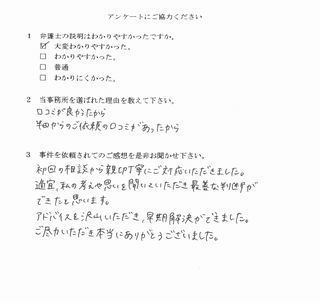 アンケートにご協力ください
1 弁護士の説明はわかりやすかったですか。
☑ 大変わかりやすかった。
□ わかりやすかった。
□ 普通
□ わかりにくかった。
2 当事務所を選ばれた理由を教えて下さい。
口コミが良かったから
からのご依頼の口コミがあったから
3 事件を依頼されてのご感想を是非お聞かせ下さい。
初回の相談から親切丁寧にご対応いただきました。
適宜、私の考えや思いを聞いていただき最善な判断が
できたと思います。
アドバイスを沢山いただき、早期解決ができました。
ご尽力いただき本当にありがとうございました。